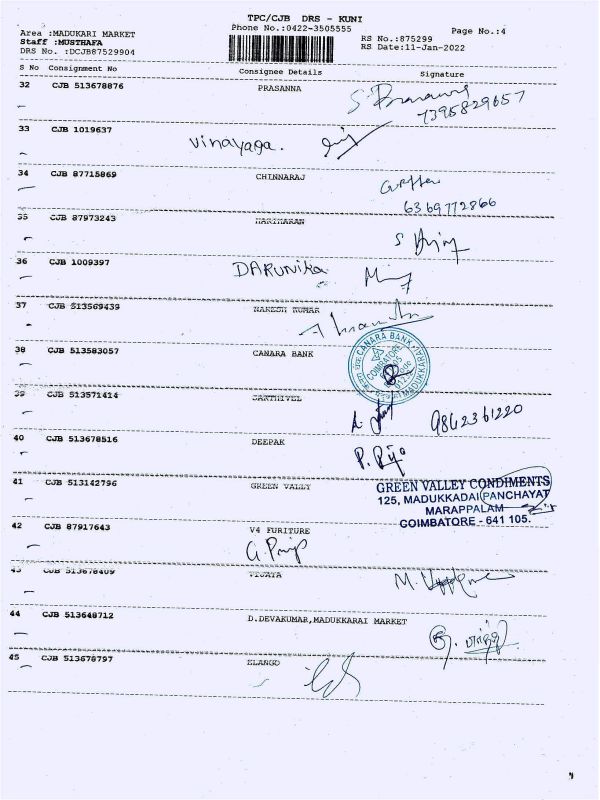 TPC/CJB DRS - KUNI
Phone No.:0422-3505555
Page No.:4
Area :MADUKARI MARKET
Staff :MUSTHAFA
DRS No. :DCJB87529904
RS No.:875299
RS Date:11-Jan-2022
S No Consignment No Consignee Details Signature
32 CJB 513678876 PRASANNA
7395829657
33 CJB 1019637
vinayaga.
34 CJB 87715869 CHINNARAJ
6369772866
35 CJB 87973243 HARIHARAN
S
36 CJB 1009397 DARUNIKA
37 CJB 513569439 NARESH KUMAR
38 CJB 513583057 CANARA BANK
CANARA BANK
COIMBATORE
MADUKKARAI
39 CJB 513571414 SAKTHIVEL
9862361220
40 CJB 513678516 DEEPAK
41 CJB 513142796 GREEN VALLY
GREEN VALLEY CONDIMENTS
125, MADUKKADAI PANCHAYAT
MARAPPALAM
COIMBATORE - 641 105.
42 CJB 87917643 V4 FURITURE
43 CJB 513678409 VIJAYA
44 CJB 513648712 D.DEVAKUMAR,MADUKKARAI MARKET
45 CJB 513678797 ELANGO